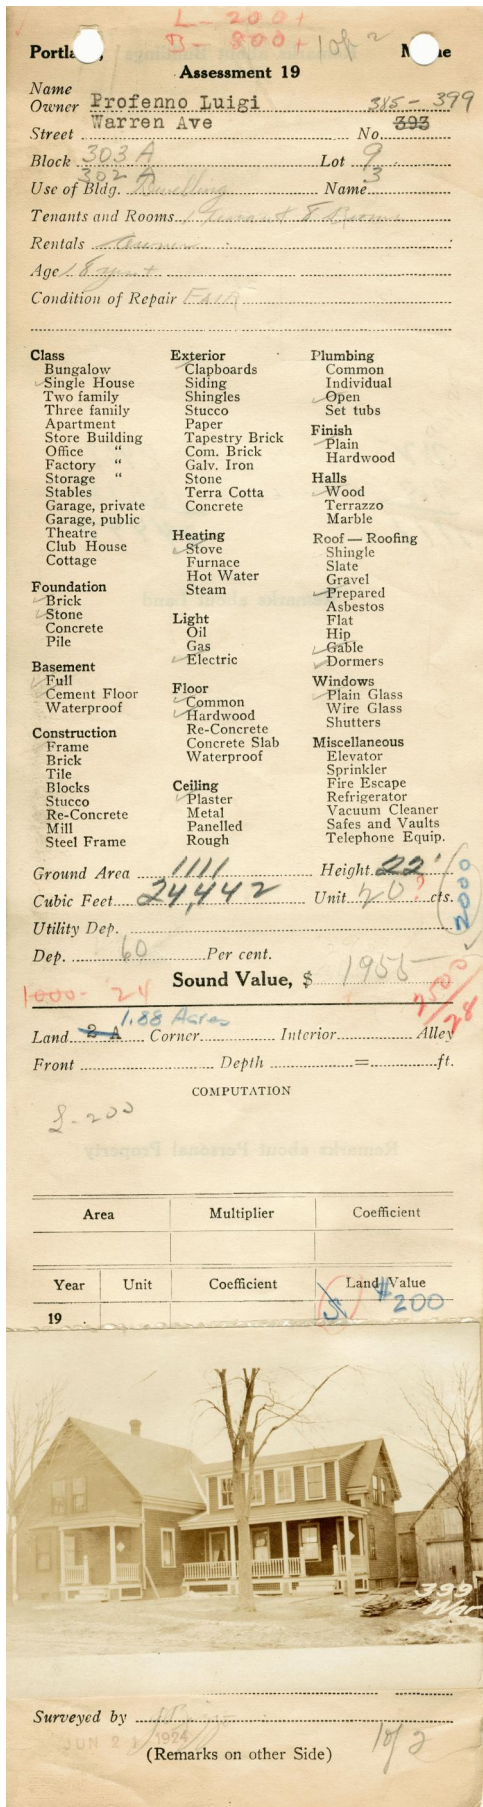 L- 200+
B- 800+ 1 of 2
Portla, M ne
Assessment 19
Name
Owner Profenno Luigi 385-399
Street Warren Ave No. 393
Block 303 A Lot 9
302 A 3
Use of Bldg. Dwelling Name
Tenants and Rooms 1 Tenant 8 Rooms
Rentals Owner
Age 18 yrs +
Condition of Repair FAIR
Class
Bungalow
Single House
Two family
Three family
Apartment
Store Building
Office "
Factory "
Storage "
Stables
Garage, private
Garage, public
Theatre
Club House
Cottage
Foundation
Brick
Stone
Concrete
Pile
Basement
Full
Cement Floor
Waterproof
Construction
Frame
Brick
Tile
Blocks
Stucco
Re-Concrete
Mill
Steel Frame
Exterior
Clapboards
Siding
Shingles
Stucco
Paper
Tapestry Brick
Com. Brick
Galv. Iron
Stone
Terra Cotta
Concrete
Heating
Stove
Furnace
Hot Water
Steam
Light
Oil
Gas
Electric
Floor
Common
Hardwood
Re-Concrete
Concrete Slab
Waterproof
Ceiling
Plaster
Metal
Panelled
Rough
Plumbing
Common
Individual
Open
Set tubs
Finish
Plain
Hardwood
Halls
Wood
Terrazzo
Marble
Roof — Roofing
Shingle
Slate
Gravel
Prepared
Asbestos
Flat
Hip
Gable
Dormers
Windows
Plain Glass
Wire Glass
Shutters
Miscellaneous
Elevator
Sprinkler
Fire Escape
Refrigerator
Vacuum Cleaner
Safes and Vaults
Telephone Equip.
Ground Area 1111 Height 22'
Cubic Feet 24,442 Unit 20? cts.
2000
Utility Dep.
Dep. 60 Per cent.
Sound Value, $ 1955
1000- '24
2500/28
1.88 Acres
Land 2 A Corner Interior Alley
Front Depth = ft.
COMPUTATION
L-200
Remarks about Personal Property
Area Multiplier Coefficient
Year Unit Coefficient Land Value
19 $ $200
399
War
Surveyed by
JUN 21 1924
1 of 2
(Remarks on other Side)